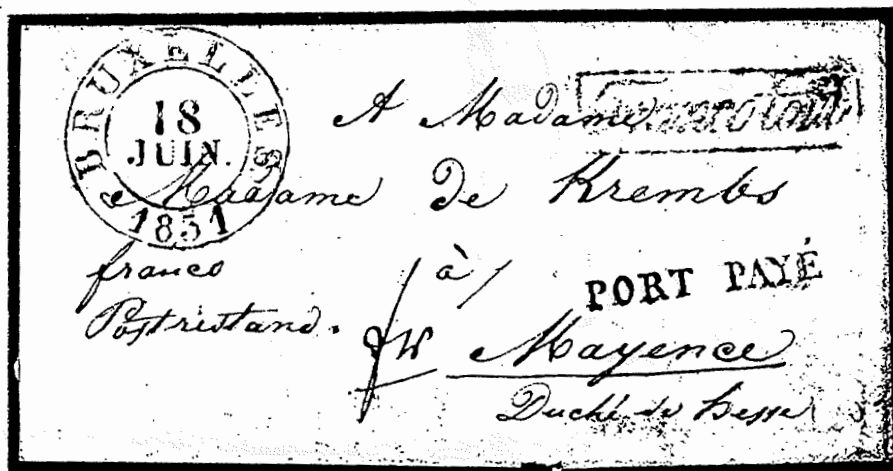 BRUXELLES
18
JUIN.
1831
A Madame
Madame de Krembs
franco
à
PORT PAYÉ
Postrestand.
Mayence
Duché de Hesse